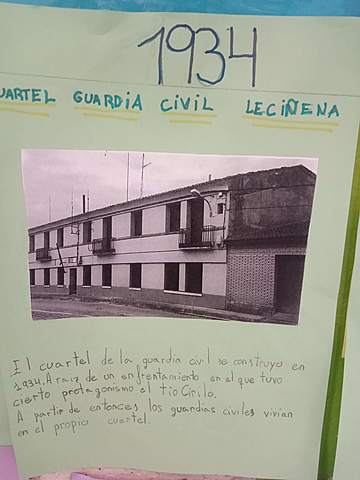 1934
UARTEL GUARDIA CIVIL LECIÑENA
El cuartel de la guardia civil se construyo en
1934. A raiz de un enfrentamiento en el que tuvo
cierto protagonismo el tio Cirilo.
A partir de entonces los guardias civiles vivian
en el propio cuartel.